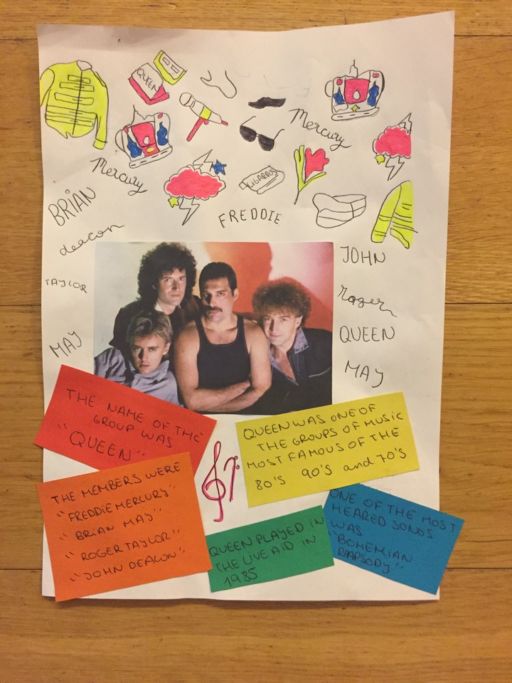 QUEEN
Mercury
Mercury
BRIAN
deacon
FREDDIE
TAYLOR
MAY
JOHN
roger
QUEEN
MAY
THE NAME OF THE
GROUP WAS
"QUEEN"
QUEEN WAS ONE OF
THE GROUPS OF MUSIC
MOST FAMOUS OF THE
80'S 90'S and 70'S
THE MEMBERS WERE
"FREDDIE MERCURY"
"BRIAN MAY"
"ROGER TAYLOR"
"JOHN DEACON"
QUEEN PLAYED IN
THE LIVE AID IN
1985
ONE OF THE MOST
HEARED SONGS
WAS
"BOHEMIAN
RAPSODY"